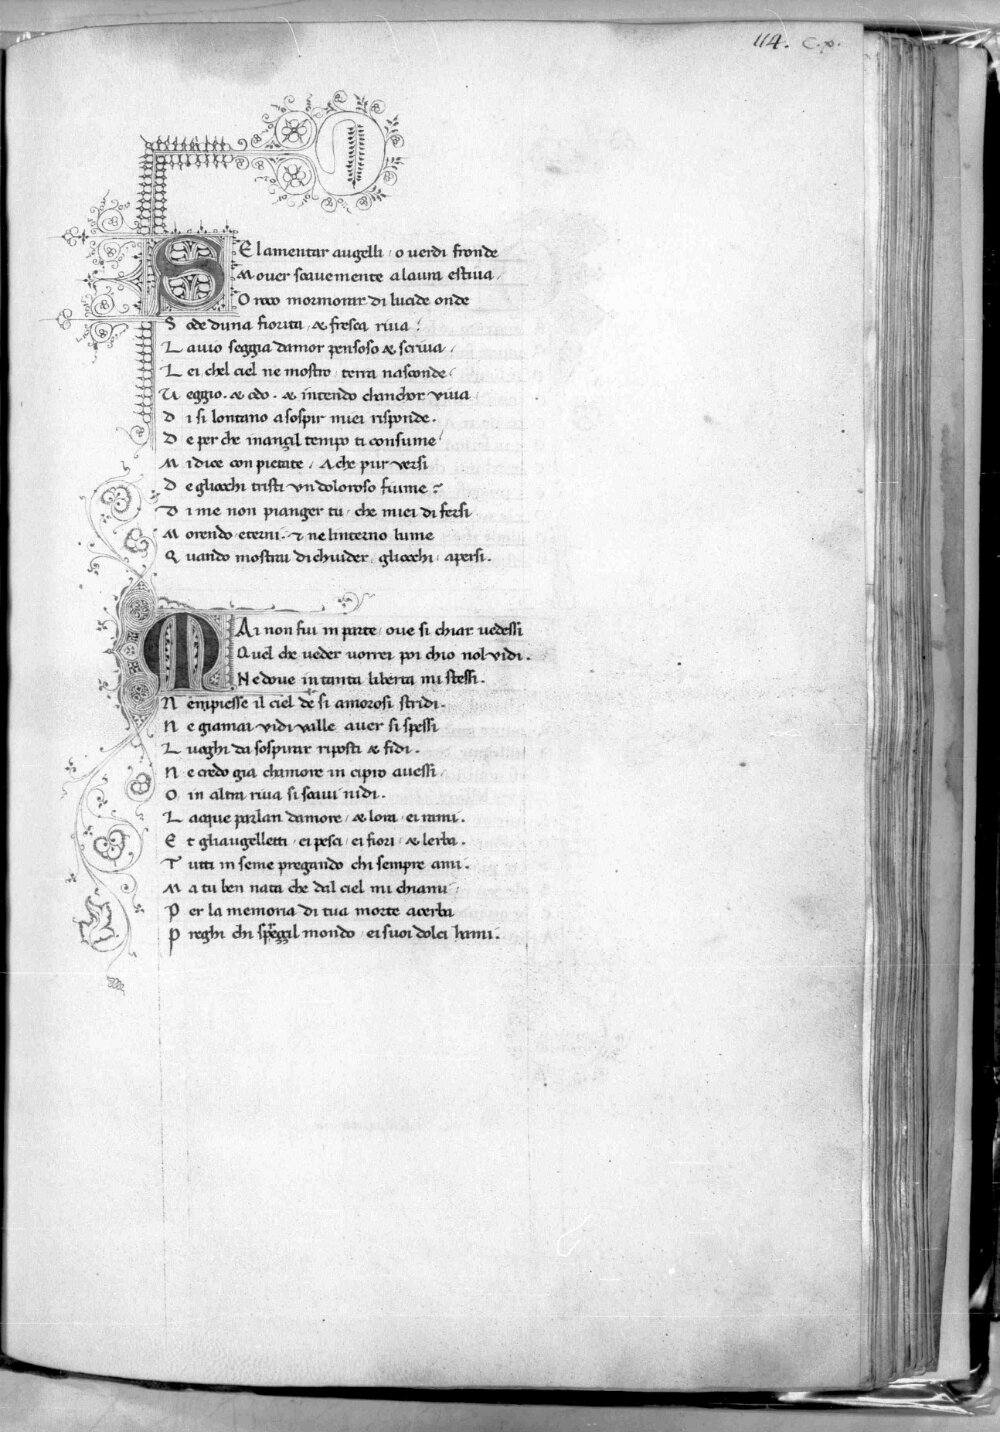 114. c.p.
SE lamentar augelli / o uerdi fronde
Mouer soauemente a laura estiua /
O roco mormorar di lucide onde
S ode duna fiorita / & fresca riua /
L a uio seggia damor pensoso & scriua /
L ei chel ciel ne mostro / terra nasconde /
U eggio . & odo . & intendo chanchor viua
D i si lontano a sospir miei risponde .
D e per che inançil tempo ti consume
M i dice con pietate / A che pur versi
D e gliocchi tristi vn doloroso fiume ?
D i me non pianger tu / che miei di fersi
M orendo eterni . & ne linterno lume
Q uando mostrai di chiuder / gliocchi / apersi .
MAi non fui in parte / oue si chiar uedessi
Quel che ueder uorrei poi chio nol vidi .
Ne doue in tanta liberta mi stessi .
N empiesse il ciel de si amorosi stridi .
N e giamai vidi valle auer si spessi
L uoghi da sospirar riposti & fidi .
N e credo gia chamore in cipro auessi /
O in altra riua si soaui nidi .
L acque parlan damore / & lora / ei rami .
E t gliaugelletti / ei pesci / ei fiori / & lerba .
T utti in seme pregando chi sempre ami .
M a tu ben nata che dal ciel mi chiami /
P er la memoria di tua morte acerba
P reghi chi spreggil mondo / ei suoi dolci hami .